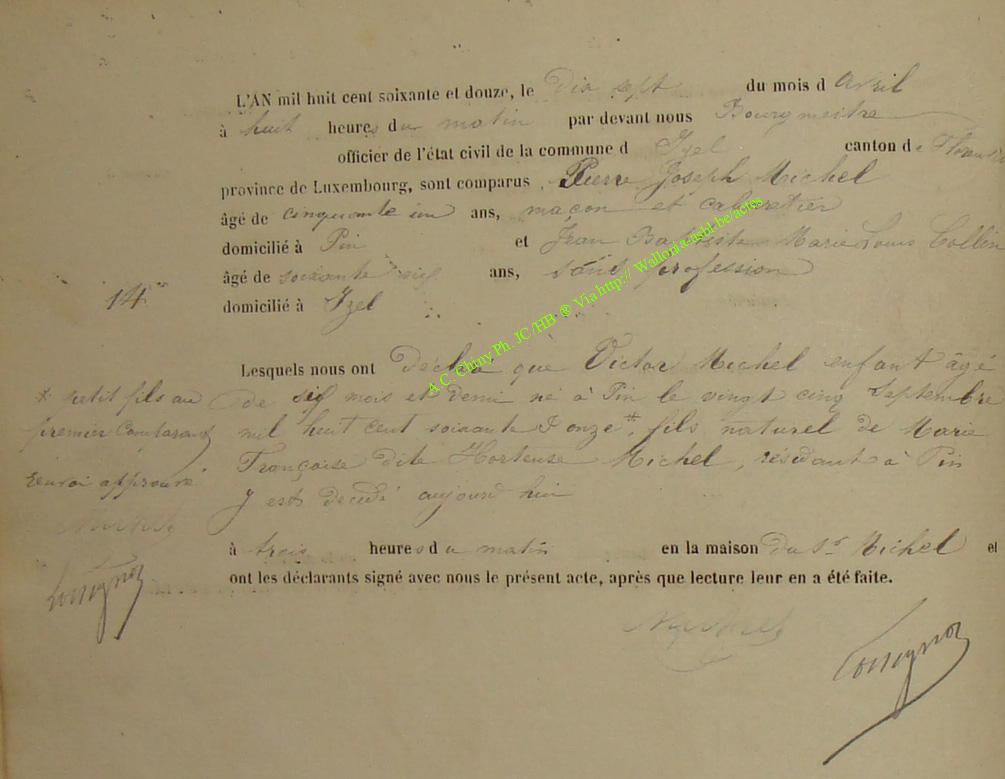 L'AN mil huit cent soixante et douze, le Dix sept du mois d avril
à huit heures du matin par devant nous Bourgmestre
officier de l'état civil de la commune d Izel canton de
province de Luxembourg, sont comparus Pierre Joseph Michel
âgé de cinquante un ans, maçon et cabaretier
domicilié à Pin et Jean Baptiste Marie Louis Collin
âgé de soixante six ans, sans profession
14 domicilié à Izel
Lesquels nous ont déclaré que Victor Michel enfant âgé
de six mois et demi né à Pin le vingt cinq Septembre
mil huit cent soixante & onze*, fils naturel de Marie
Françoise dite Hortense Michel, résidant à Pin
y est décédé aujourd'hui
à trois heures du matin en la maison du Sr Michel et
ont les déclarants signé avec nous le présent acte, après que lecture leur en a été faite.
* petit fils au
premier Comparant
renvoi approuvé
Michel
Michel
A.C. Chiny Ph. JC/HB ® Via http:// Wallonia-asbl.be/actes